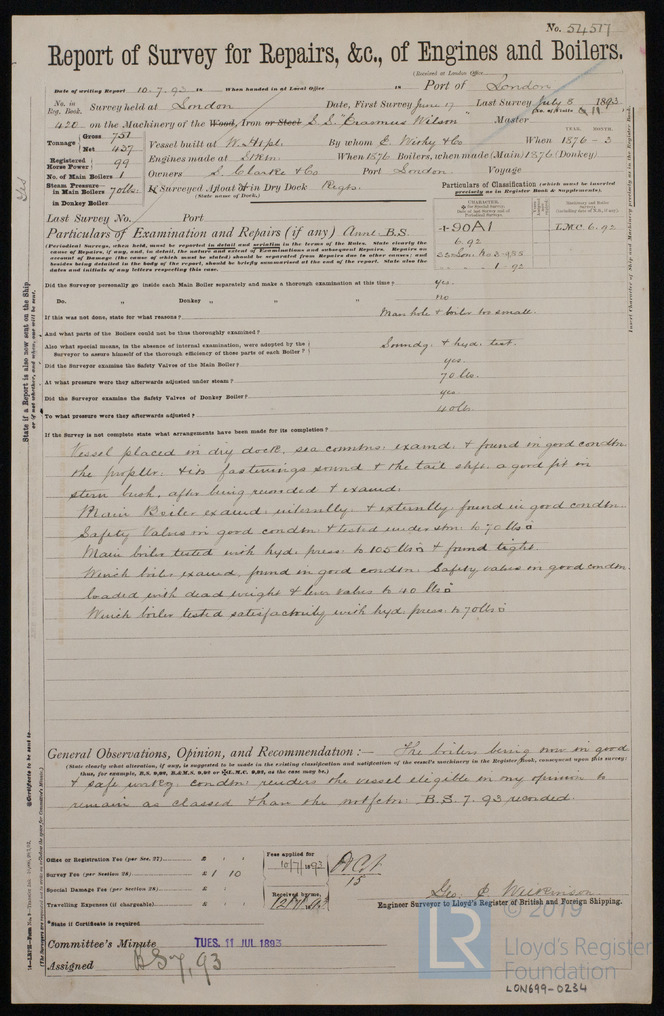 No. 54577
Report of Survey for Repairs, &c., of Engines and Boilers.
(Received at London Office
Date of writing Report 10.7.93 18 When handed in at Local Office 18 Port of London
No. in Reg. Book. Survey held at London Date, First Survey June 17 Last Survey July 8 1893
420 on the Machinery of the Wood, Iron or Steel S.S. "Erasmus Wilson" Master
Tonnage Gross 751 Net 437
Vessel built at W. Htpl. By whom E. Withy & Co When 1876-3
Registered Horse Power 99
Engines made at When 1876 Boilers, when made (Main) 1876 (Donkey)
No. of Main Boilers 1
Owners S. Clarke & Co Port London Voyage
Steam Pressure in Main Boilers 70 lbs.
in Donkey Boiler
If Surveyed Afloat or in Dry Dock Regts.
(State name of Dock.)
Particulars of Classification (which must be inserted precisely as in Register Book & Supplements).
Last Survey No. Port
Particulars of Examination and Repairs (if any) Annl B.S.
90A1
6.92
L.M.C. 6.92
(Periodical Surveys, when held, must be reported in detail and seriatim in the terms of the Rules. State clearly the cause of Repairs, if any, and, in detail, the nature and extent of Examinations and subsequent Repairs. Repairs on account of Damage (the cause of which must be stated) should be separated from Repairs due to other causes; and besides being detailed in the body of the report, should be briefly summarised at the end of the report. State also the dates and initials of any letters respecting this case.
Did the Surveyor personally go inside each Main Boiler separately and make a thorough examination at this time? yes.
Do. " Donkey " " " no
If this was not done, state for what reasons? Manhole & boiler too small.
And what parts of the Boilers could not be thoroughly examined?
Also what special means, in the absence of internal examination, were adopted by the Surveyor to assure himself of the thorough efficiency of those parts of each Boiler? Soundg. & hyd. test.
Did the Surveyor examine the Safety Valves of the Main Boiler? yes.
At what pressure were they afterwards adjusted under steam? 70 lbs.
Did the Surveyor examine the Safety Valves of Donkey Boiler? yes.
To what pressure were they afterwards adjusted? 40 lbs
If the Survey is not complete state what arrangements have been made for its completion?
Vessel placed in dry dock, sea conntns: examd. & found in good condtn.
the propller & its fastenings sound & the tail shft. a good fit in
stern bush, after being rewooded & examd.
Main Boiler examd. internally & externally found in good condtn.
Safety Valves in good condtn. & tested under stm: to 70 lbs
Main boiler tested with hyd. press: to 105 lbs & found tight.
Winch boiler examd. found in good condtn: Safety valves in good condtn.
loaded with dead weight & lever valves to 40 lbs
Winch boiler tested satisfactorily with hyd press: to 70 lbs
General Observations, Opinion, and Recommendation:— The boilers being now in good
(State clearly what alteration, if any, is suggested to be made in the existing classification and notification of the vessel's machinery in the Register Book, consequent upon this survey;
& safe workg. condtn: renders the vessel eligible in my opinion to
remain as classed & has the notfctn: B.S. 7.93 recorded.
Office or Registration Fee (per Sec. 27) £
Survey Fee (per Section 28) £ 1 10
Special Damage Fee (per Section 28) £
Travelling Expenses (if chargeable) £
Fees applied for 10/7/1893
Received by me,
Geo. C. Wilkinson
Engineer Surveyor to Lloyd's Register of British and Foreign Shipping.
*State if Certificate is required
Committee's Minute TUES. 11 JUL 1893
Assigned BS 7,93
LR © 2019
Lloyd's Register
Foundation
LON699-0234
State if a Report is also now sent on the Ship.